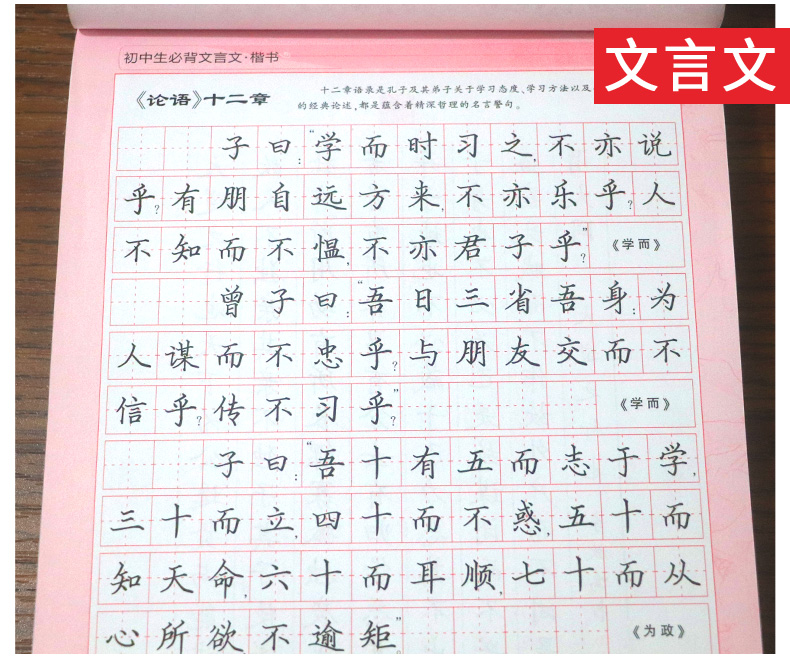 文言文
初中生必背文言文·楷书
《论语》十二章
十二章语录是孔子及其弟子关于学习态度、学习方法以及
的经典论述,都是蕴含着精深哲理的名言警句。
子曰:“学而时习之,不亦说
乎?有朋自远方来,不亦乐乎?人
不知而不愠,不亦君子乎?” 《学而》
曾子曰:“吾日三省吾身:为
人谋而不忠乎?与朋友交而不
信乎?传不习乎?” 《学而》
子曰:“吾十有五而志于学,
三十而立,四十而不惑,五十而
知天命,六十而耳顺,七十而从
心所欲,不逾矩。” 《为政》